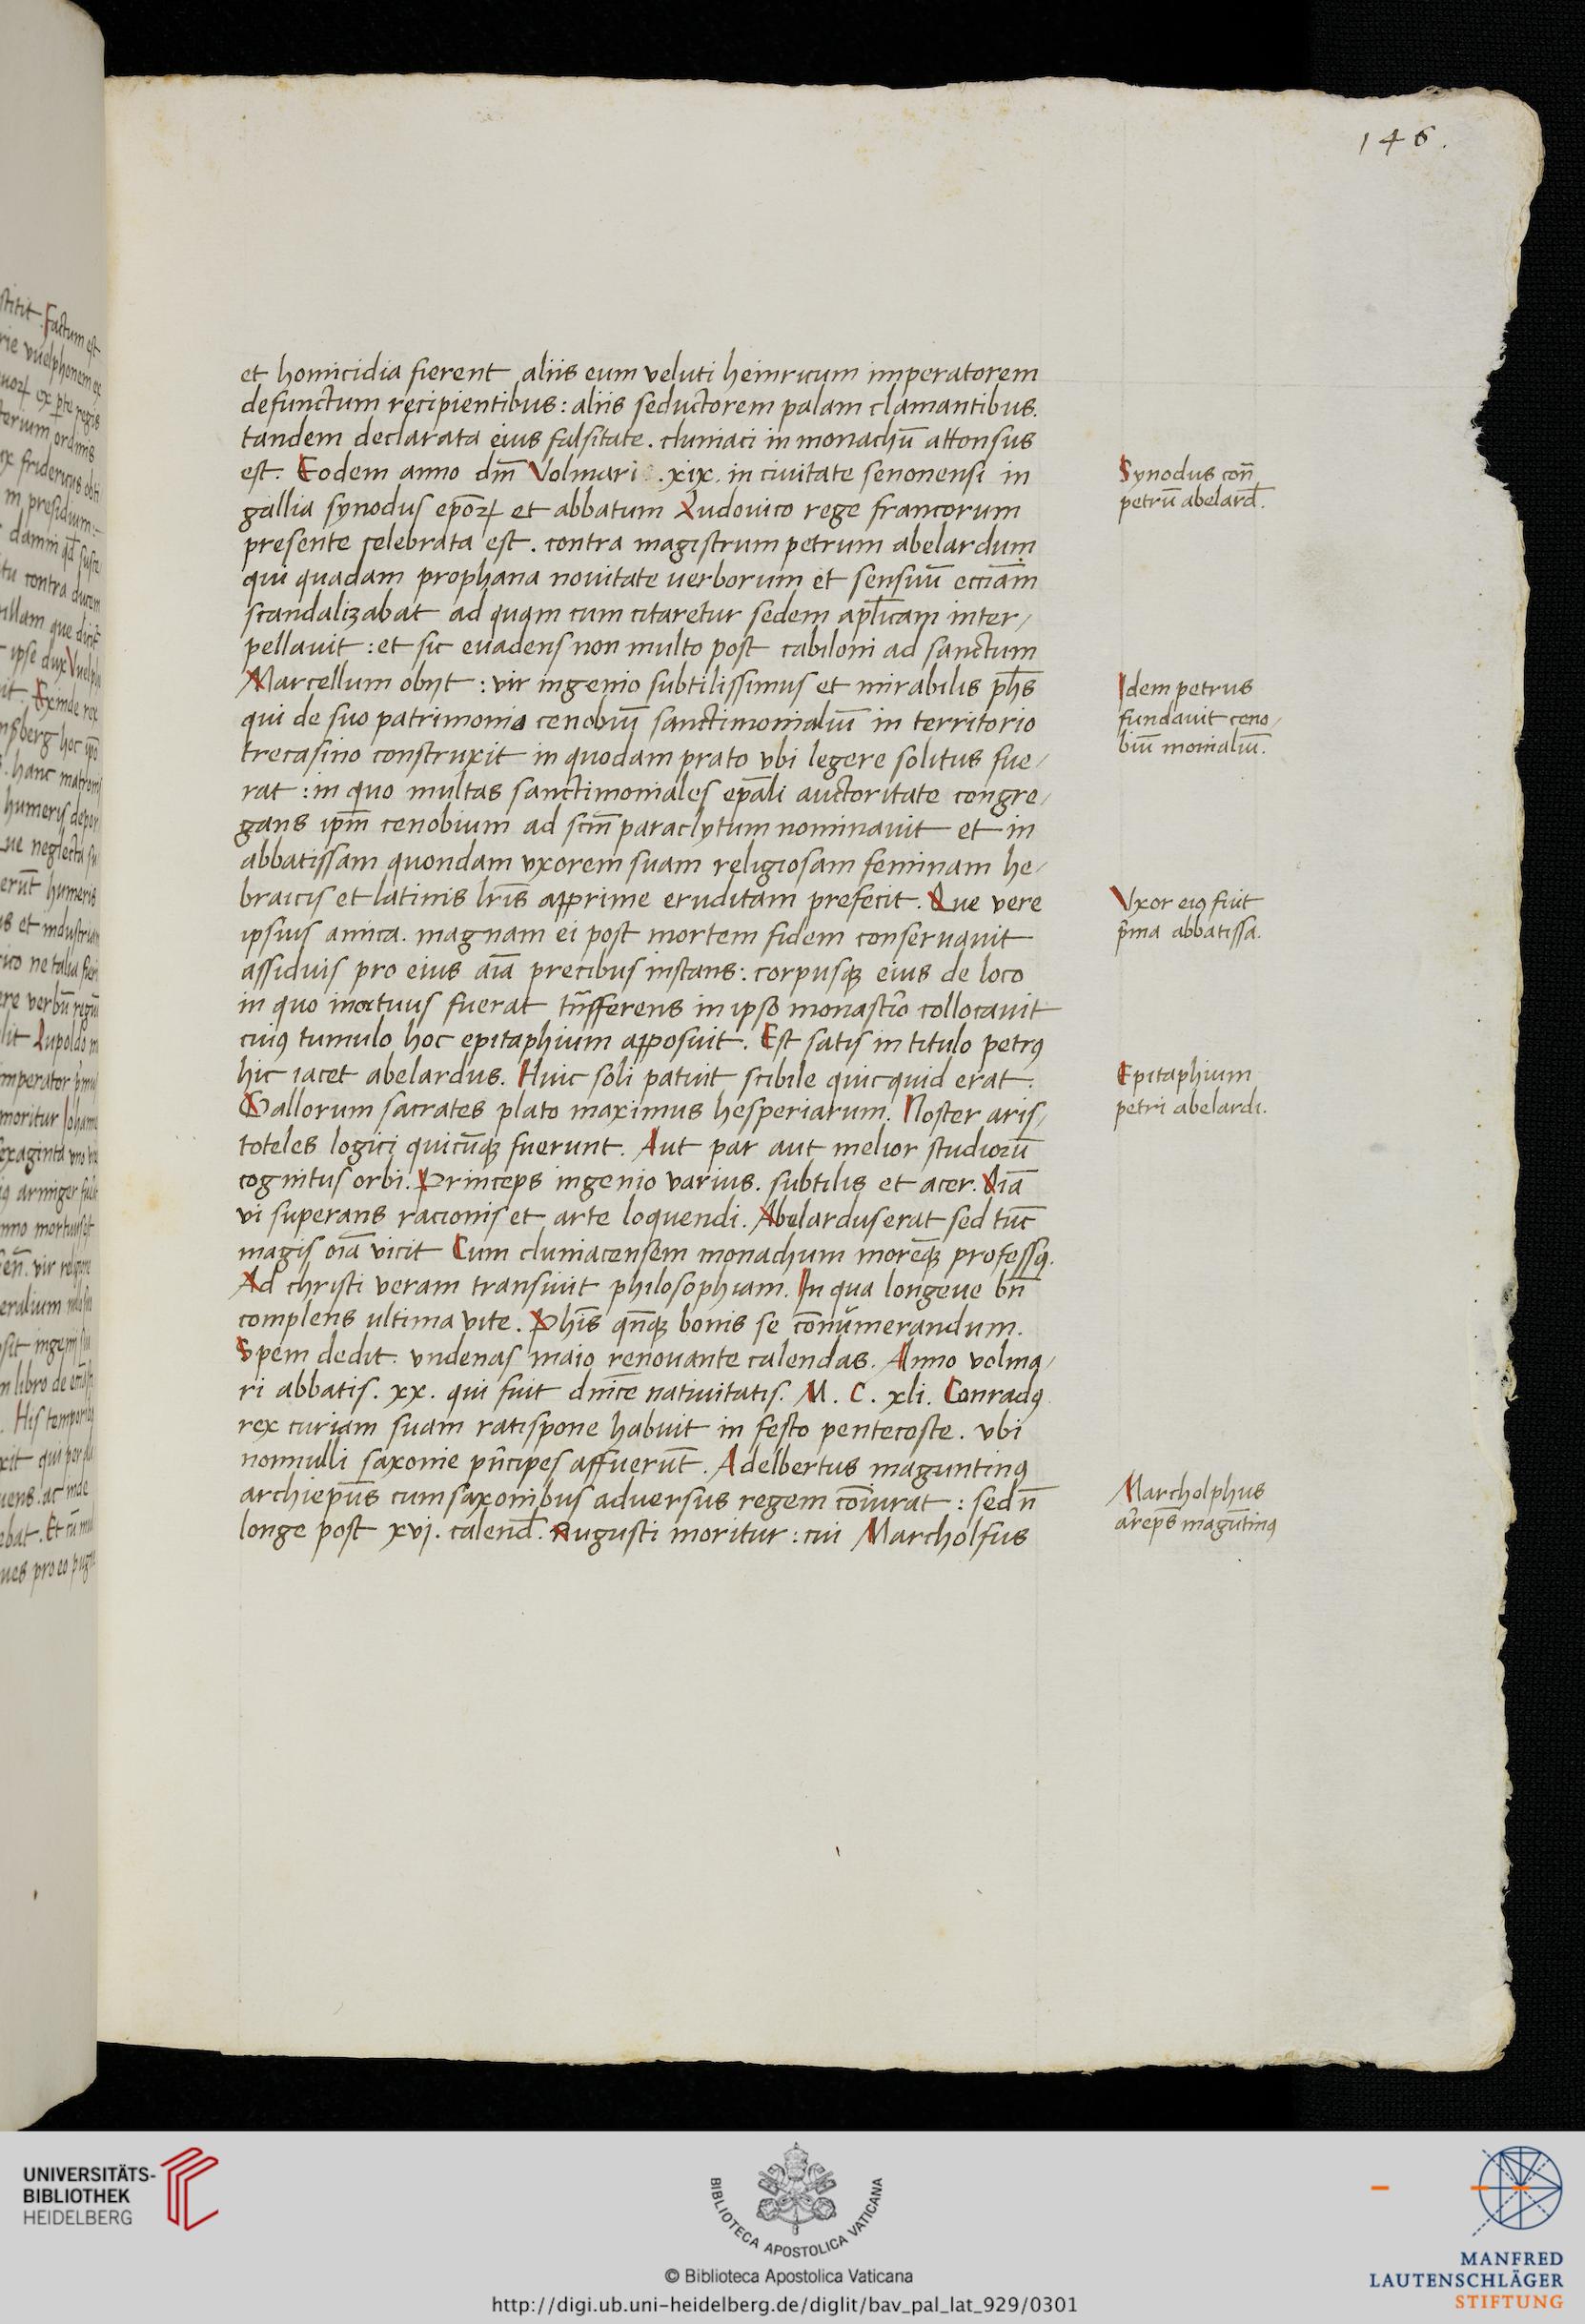 146.
et homicidia fierent aliis eum veluti heinricum imperatorem
defunctum recipientibus: aliis seductorem palam clamantibus.
tandem declarata eius falsitate. cluniaci in monachū attonsus
est. Eodem anno dm̄ Volmari .xix. in ciuitate senonensi in
gallia synodus ep̄oꝝ et abbatum Ludouico rege francorum
presente celebrata est. contra magistrum petrum abelardum
qui quadam prophana nouitate uerborum et sensuū eccīam
scandalizabat ad quam cum citaretur sedem apl̄icam inter/
pellauit: et sic euadens non multo post cabiloni ad sanctum
Marcellum obijt: vir ingenio subtilissimus et mirabilis ph̄s
qui de suo patrimonio cenobiū sanctimonialiū in territorio
trecasino construxit in quodam prato vbi legere solitus fue/
rat: in quo multas sanctimoniales ep̄ali auctoritate congre/
gans ip̄m cenobium ad scm̄ paraclytum nominauit et in
abbatissam quondam vxorem suam religiosam feminam he/
braicis et latinis lr̄is apprime eruditam prefecit. Que vere
ipsius amica. magnam ei post mortem fidem conseruauit
assiduis pro eius aīa precibus instans: corpusqꝫ eius de loco
in quo mortuus fuerat tn̄sferens in ipso monastīo collocauit
cuiꝯ tumulo hoc epitaphium apposuit. Est satis in titulo petrꝯ
hic iacet abelardus. Huic soli patuit scibile quicquid erat:
Gallorum sacrates plato maximus hesperiarum. Noster aris/
toteles logici quicūqꝫ fuerunt. Aut par aut melior studioꝛū
cognitus orbi. Princeps ingenio varius. subtilis et acer. Oīa
vi superans racionis et arte loquendi. Abelardus erat sed tūc
magis oīa vicit Cum cluniacensem monachum morēqꝫ professꝯ.
Ad christi veram transiuit philosophiam. In qua longeue bn̄
complens ultima vite. Phīs qn̄qꝫ bonis se cōnūmerandum.
Spem dedit. vndenas maio renouante calendas. Anno volma/
ri abbatis. xx. qui fuit dnīce natiuitatis. M. C. xli. Conradꝯ
rex curiam suam ratispone habuit in festo pentecoste. vbi
nonnulli saxonie pn̄cipes affuerūt. Adelbertus maguntinꝯ
archiep̄us cum saxonibus aduersus regem cōiurat: sed n̄
longe post xvj. calend̄. Augusti moritur: cui Marcholfus
Synodus con̄
petrū abelard̄.
Idem petrus
fundauit ceno/
biū monialiū.
Vxor eiꝯ fuit
p̄ma abbatissa.
Epitaphium
petri abelardi.
Marcholphus
ar̄eps̄ magūtinꝯ
UNIVERSITÄTS-
BIBLIOTHEK
HEIDELBERG
BIBLIOTECA APOSTOLICA VATICANA
© Biblioteca Apostolica Vaticana
http://digi.ub.uni-heidelberg.de/diglit/bav_pal_lat_929/0301
MANFRED
LAUTENSCHLÄGER
STIFTUNG